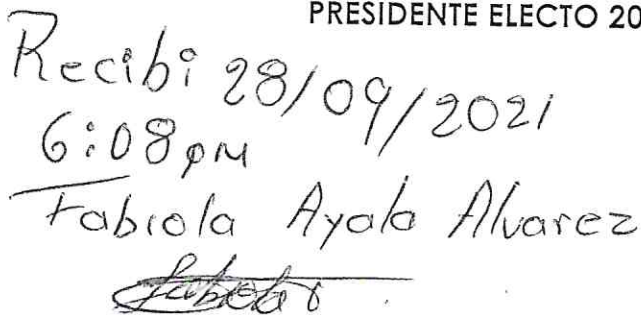 PRESIDENTE ELECTO 20
Recibi 28/09/2021
6:08pm
Fabiola Ayala Alvarez
Fabiola